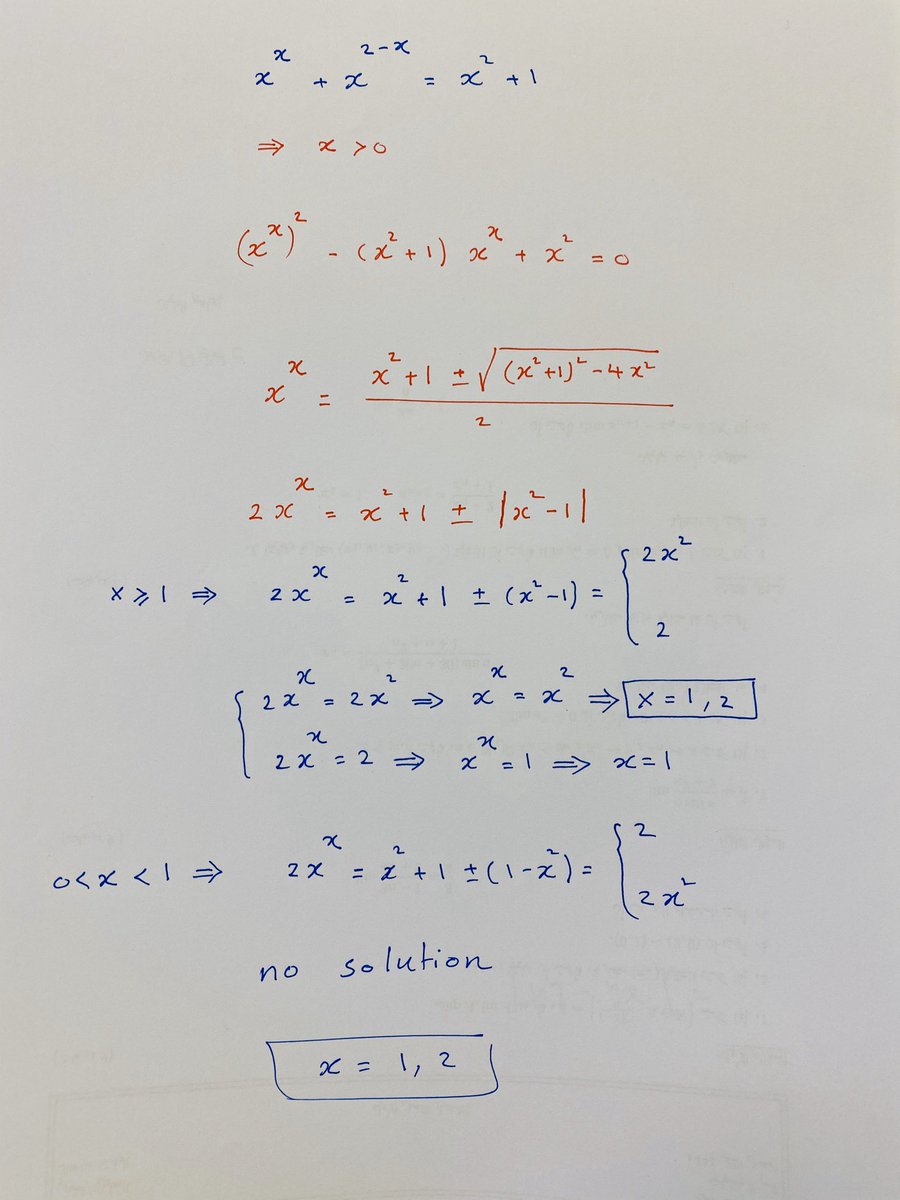 x^x + x^{2-x} = x^2 + 1
⇒ x > 0
(x^x)^2 - (x^2+1) x^x + x^2 = 0
x^x = \frac{x^2+1 ± \sqrt{(x^2+1)^2 - 4x^2}}{2}
2x^x = x^2+1 ± |x^2-1|
x ⩾ 1 ⇒ 2x^x = x^2+1 ± (x^2-1) = { 2x^2 ; 2
{ 2x^x = 2x^2 ⇒ x^x = x^2 ⇒ x = 1, 2
2x^x = 2 ⇒ x^x = 1 ⇒ x = 1
0 < x < 1 ⇒ 2x^x = x^2+1 ± (1-x^2) = { 2 ; 2x^2
no solution
x = 1, 2